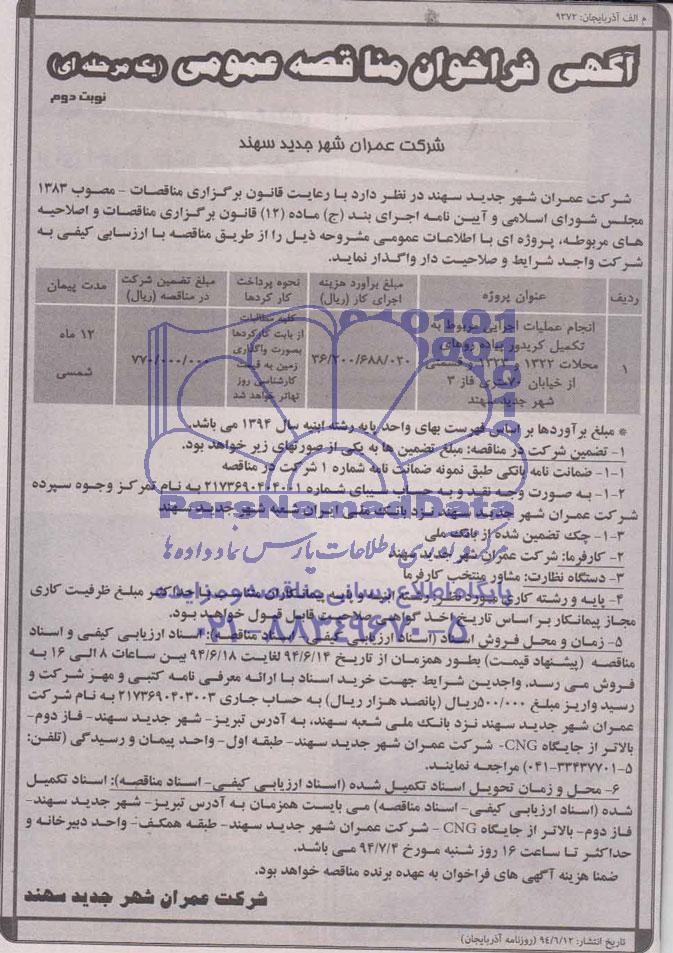 م الف آذربایجان: ۹۲۷۲
آگهی فراخوان مناقصه عمومی (یک مرحله ای)
نوبت دوم
شرکت عمران شهر جدید سهند
شرکت عمران شهر جدید سهند در نظر دارد با رعایت قانون برگزاری مناقصات - مصوب ۱۳۸۳
مجلس شورای اسلامی و آیین نامه اجرای بند (ج) ماده (۱۲) قانون برگزاری مناقصات و اصلاحیه
های مربوطه، پروژه ای با اطلاعات عمومی مشروحه ذیل را از طریق مناقصه با ارزسابی کیفی به
شرکت واجد شرایط و صلاحیت دار واگذار نماید.
ردیف عنوان پروژه مبلغ برآورد هزینه اجرای کار (ریال) نحوه پرداخت کار کردها مبلغ تضمین شرکت در مناقصه (ریال) مدت پیمان
۱ انجام عملیات اجرایی مربوط به تکمیل کریدور پیاده روهای محلات ۱۳۲۲ و ۱۳۲۳ و قسمتی از خیابان ۷۰متری فاز ۳ شهر جدید سهند ۳۶/۲۰۰/۶۸۸/۰۲۰ کلیه مطالبات از بابت کارکردها بصورت واگذاری زمین به قیمت کارشناسی روز تهاتر خواهد شد ۷۷۰/۰۰۰/۰۰۰ ۱۲ ماه شمسی
* مبلغ برآوردها بر اساس فهرست بهای واحد پایه رشته ابنیه سال ۱۳۹۴ می باشد.
۱- تضمین شرکت در مناقصه: مبلغ تضمین ها به یکی از صورتهای زیر خواهد بود.
۱-۱- ضمانت نامه بانکی طبق نمونه ضمانت نامه شماره ۱ شرکت در مناقصه
۱-۲- به صورت وجه نقد و به حساب سیبای شماره ۲۱۷۳۶۹۰۴۰۴۰۰۱ به نام تمرکز وجوه سپرده
شرکت عمران شهر جدید سهند نزد بانک ملی ایران شعبه شهر جدید سهند
۱-۳- چک تضمین شده از بانک ملی
۲- کارفرما: شرکت عمران شهر جدید سهند
۳- دستگاه نظارت: مشاور منتخب کارفرما
۴- پایه و رشته کاری مورد نظر: رشته ابنیه و پایه پیمانکاران متناسب با حداکثر مبلغ ظرفیت کاری
مجاز پیمانکار بر اساس تاریخ اخذ گواهی صلاحیت قابل قبول خواهد بود.
۵- زمان و محل فروش اسناد (اسناد ارزیابی کیفی - اسناد مناقصه): اسناد ارزیابی کیفی و اسناد
مناقصه (پیشنهاد قیمت) بطور همزمان از تاریخ ۹۴/۶/۱۴ لغایت ۹۴/۶/۱۸ بین ساعات ۸ الی ۱۶ به
فروش می رسد. واجدین شرایط جهت خرید اسناد با ارائه معرفی نامه کتبی و مهر شرکت و
رسید واریز مبلغ ۵۰۰/۰۰۰ریال (پانصد هزار ریال) به حساب جاری ۲۱۷۳۶۹۰۴۰۳۰۰۳ به نام شرکت
عمران شهر جدید سهند نزد بانک ملی شعبه سهند، به آدرس تبریز- شهر جدید سهند- فاز دوم-
بالاتر از جایگاه CNG- شرکت عمران شهر جدید سهند- طبقه اول- واحد پیمان و رسیدگی (تلفن:
۰۴۱-۳۳۴۳۷۷۰۱-۵) مراجعه نمایند.
۶- محل و زمان تحویل اسناد تکمیل شده (اسناد ارزیابی کیفی- اسناد مناقصه): اسناد تکمیل
شده (اسناد ارزیابی کیفی- اسناد مناقصه) می بایست همزمان به آدرس تبریز- شهر جدید سهند-
فاز دوم- بالاتر از جایگاه CNG - شرکت عمران شهر جدید سهند- طبقه همکف- واحد دبیرخانه و
حداکثر تا ساعت ۱۶ روز شنبه مورخ ۹۴/۷/۴ می باشد.
ضمنا هزینه آگهی های فراخوان به عهده برنده مناقصه خواهد بود.
شرکت عمران شهر جدید سهند
تاریخ انتشار: ۹۴/۶/۱۲ (روزنامه آذربایجان)
ParsNamadData
مرکز فرآوری اطلاعات پارس نماد داده ها
پایگاه اطلاع رسانی مناقصه و مزایده
۰۲۱-۸۸۳۴۹۶۷۰-۵